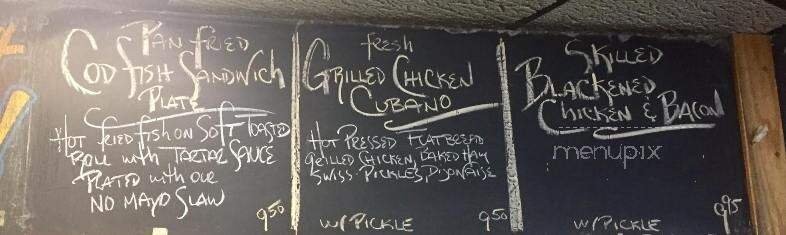 Pan Fried
Cod fish Sandwich
Plate
Hot fried fish on Soft Toasted
Roll with Tartar Sauce
Plated with our
No Mayo Slaw
9 50
fresh
Grilled Chicken
Cubano
Hot Pressed Flatbread
Grilled Chicken, Baked Ham
Swiss Pickles, Dijonaise
w/ Pickle
9 50
Skilled
Blackened
Chicken & Bacon
menupix
w/ Pickle
9 95